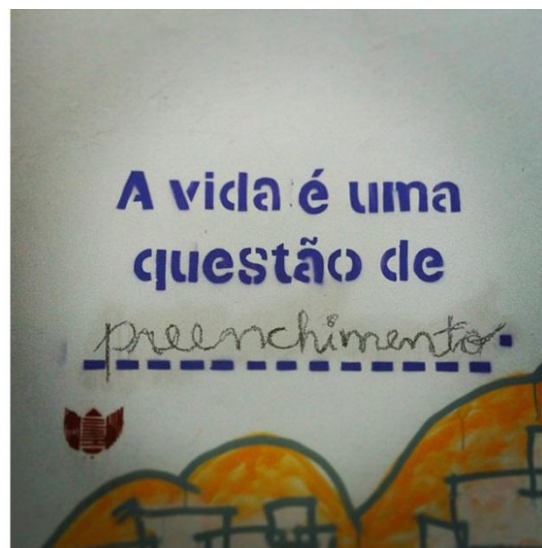 A vida é uma
questão de
preenchimento.